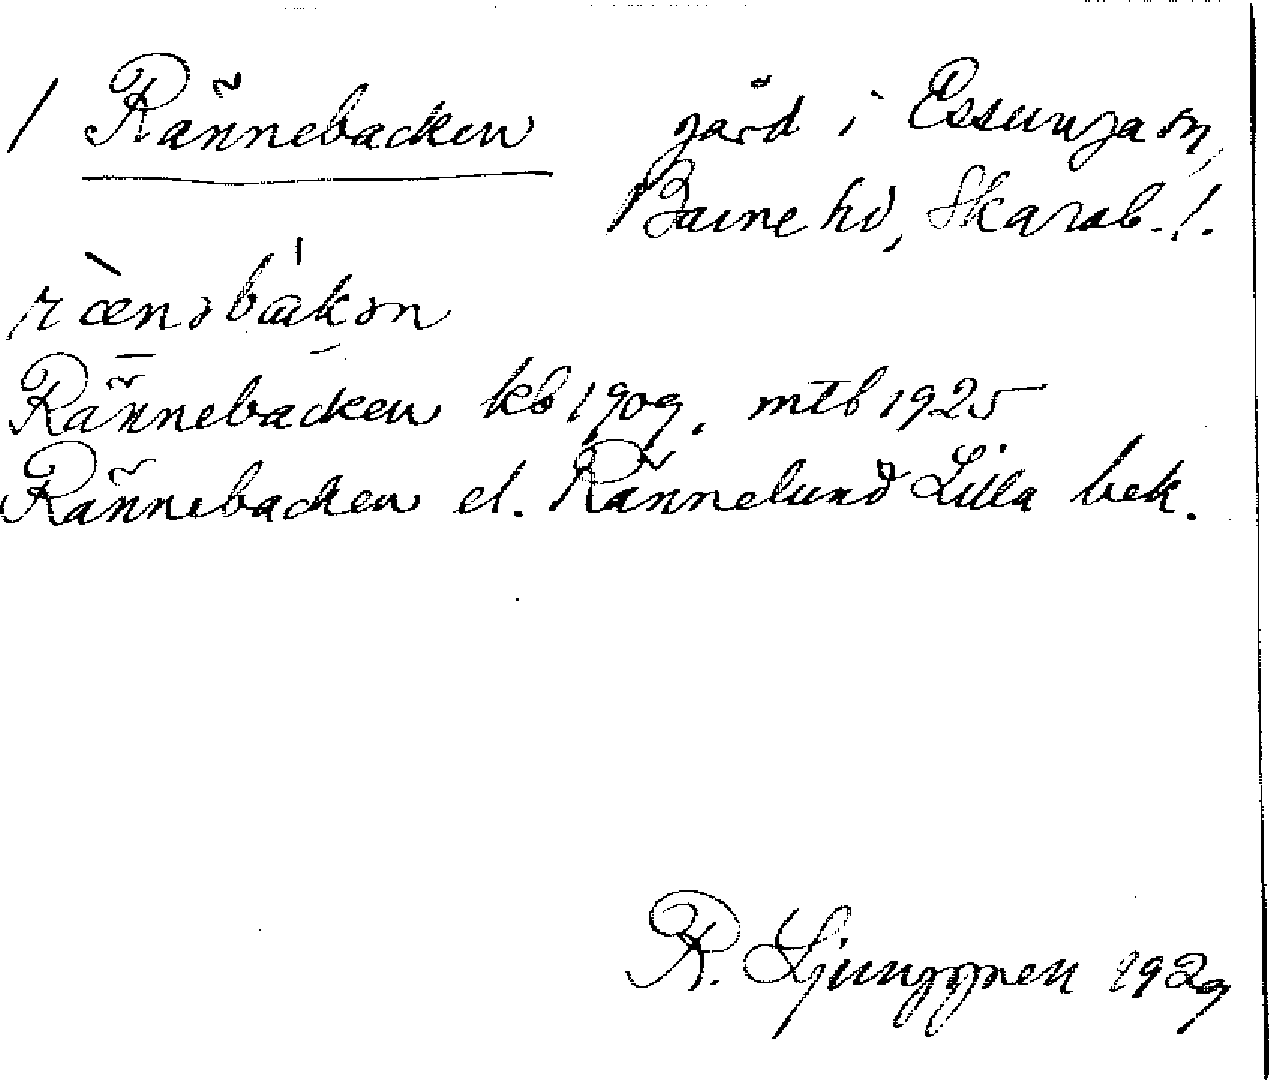 / Rännebacken gård i Essunga sn,
Barne hd, Skarab. l.
rænəbákən
Rännebacken kb 1909, mtb 1925
Rännebacken el. Rännelund Lilla bek.
R. Ljunggren 1929